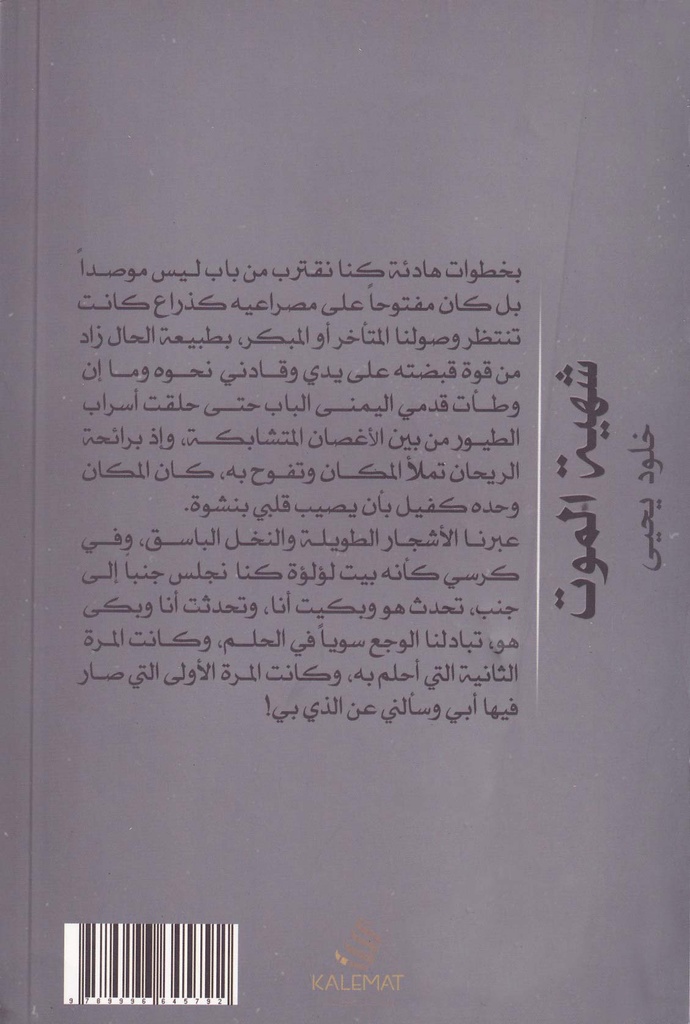 بخطوات هادئة كنا نقترب من باب ليس موصداً
بل كان مفتوحاً على مصراعيه كذراع كانت
تنتظر وصولنا المتأخر أو المبكر، بطبيعة الحال زاد
من قوة قبضته على يدي وقادني نحوه وما إن
وطأت قدمي اليمنى الباب حتى حلقت أسراب
الطيور من بين الأغصان المتشابكة، وإذ برائحة
الريحان تملأ المكان وتفوح به، كان المكان
وحده كفيل بأن يصيب قلبي بنشوة.
عبرنا الأشجار الطويلة والنخل الباسق، وفي
كرسي كأنه بيت لؤلؤة كنا نجلس جنباً إلى
جنب، تحدث هو وبكيت أنا، وتحدثت أنا وبكى
هو، تبادلنا الوجع سوياً في الحلم، وكانت المرة
الثانية التي أحلم به، وكانت المرة الأولى التي صار
فيها أبي وسألني عن الذي بي!
شهية الموت
خلود يحيى
9789996645792
KALEMAT